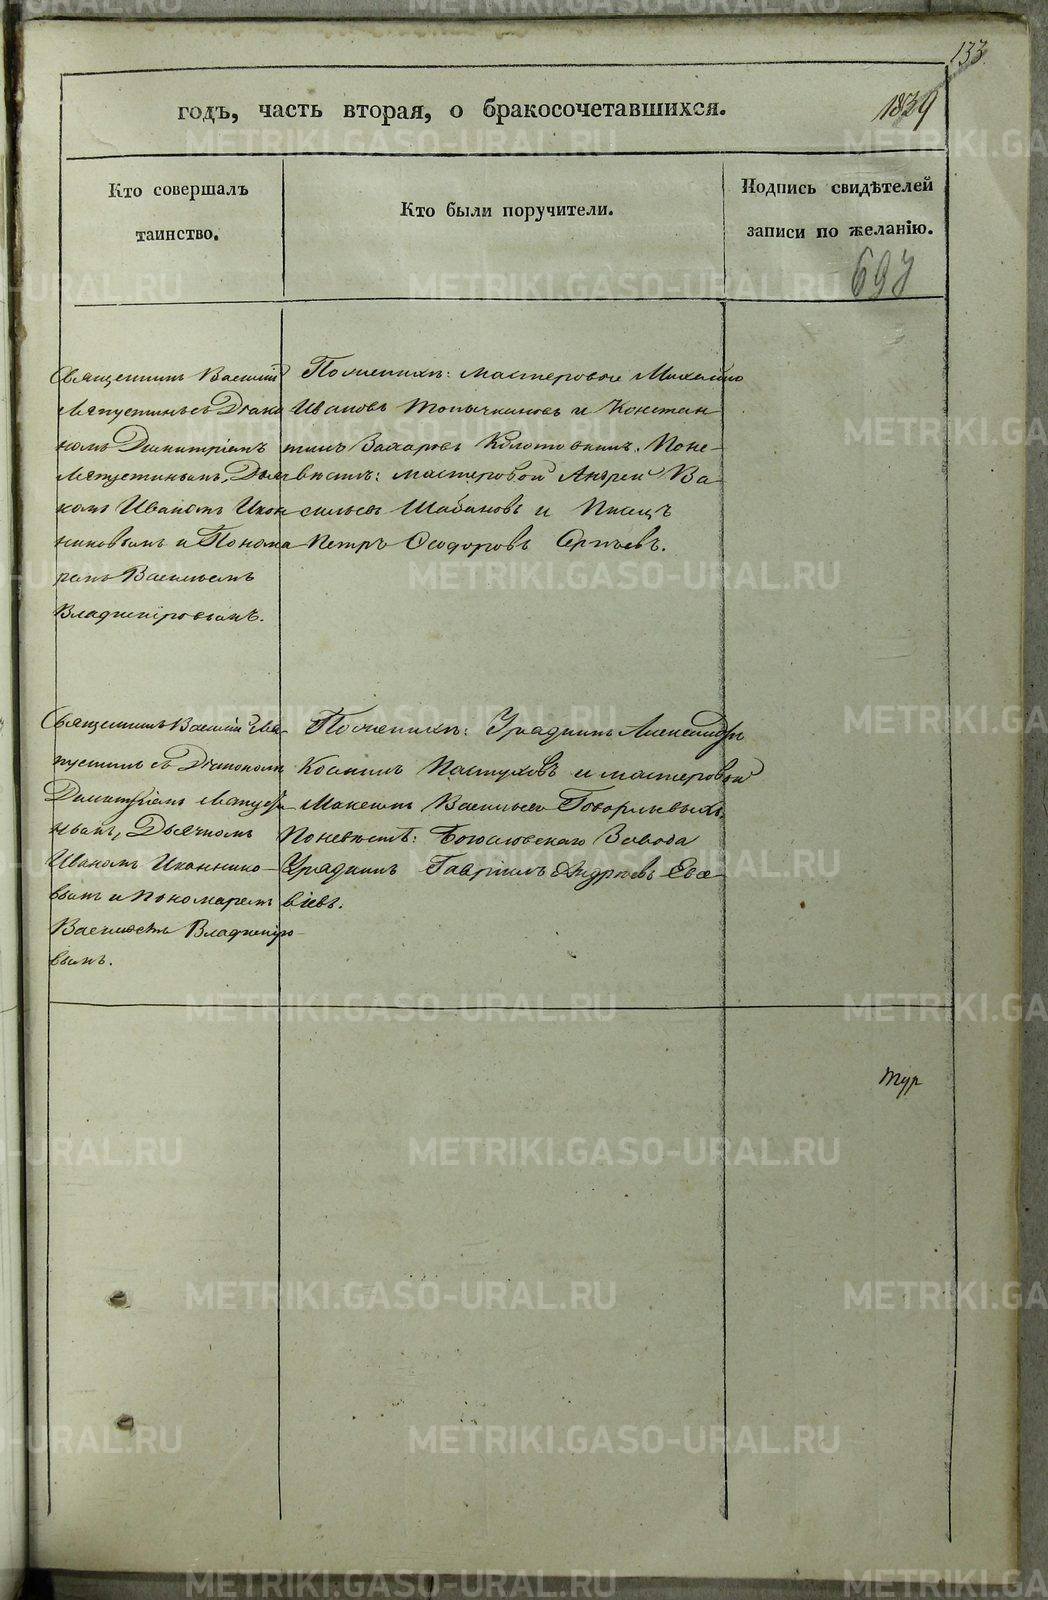 133.
годъ, часть вторая, о бракосочетавшихся.
1839
Кто совершалъ
таинство.
Кто были поручители.
Подпись свидѣтелей
записи по желанію.
697
Священникъ Василій
Мапустинъ съ Діако
номъ Димитріемъ
Мапустинымъ, Дьяч
комъ Иваномъ Икон
никовымъ и Понома
ремъ Васильемъ
Владиміровымъ.
По женихѣ: мастеровые Михайло
Ивановъ Топычкановъ и Констан
тинъ Захаровъ Колотовкинъ. По не
вѣстѣ: мастеровой Андрей Ва
сильевъ Шабановъ и Писецъ
Петръ Ѳеодоровъ Сергѣевъ.
Священникъ Василій Ма
пустинъ съ Діакономъ
Димитріемъ Мапусти
нымъ, Дьячкомъ
Иваномъ Иконнико
вымъ и Пономаремъ
Васильемъ Владиміро
вымъ.
По женихѣ: Урядникъ Александръ
Косминъ Пастуховъ и мастеровой
Максимъ Васильевъ Говорливыхъ.
По невѣстѣ: Богословскаго Завода
Урядникъ Гавріилъ Андреевъ Евсе
віевъ.
тур
METRIKI.GASO-URAL.RU